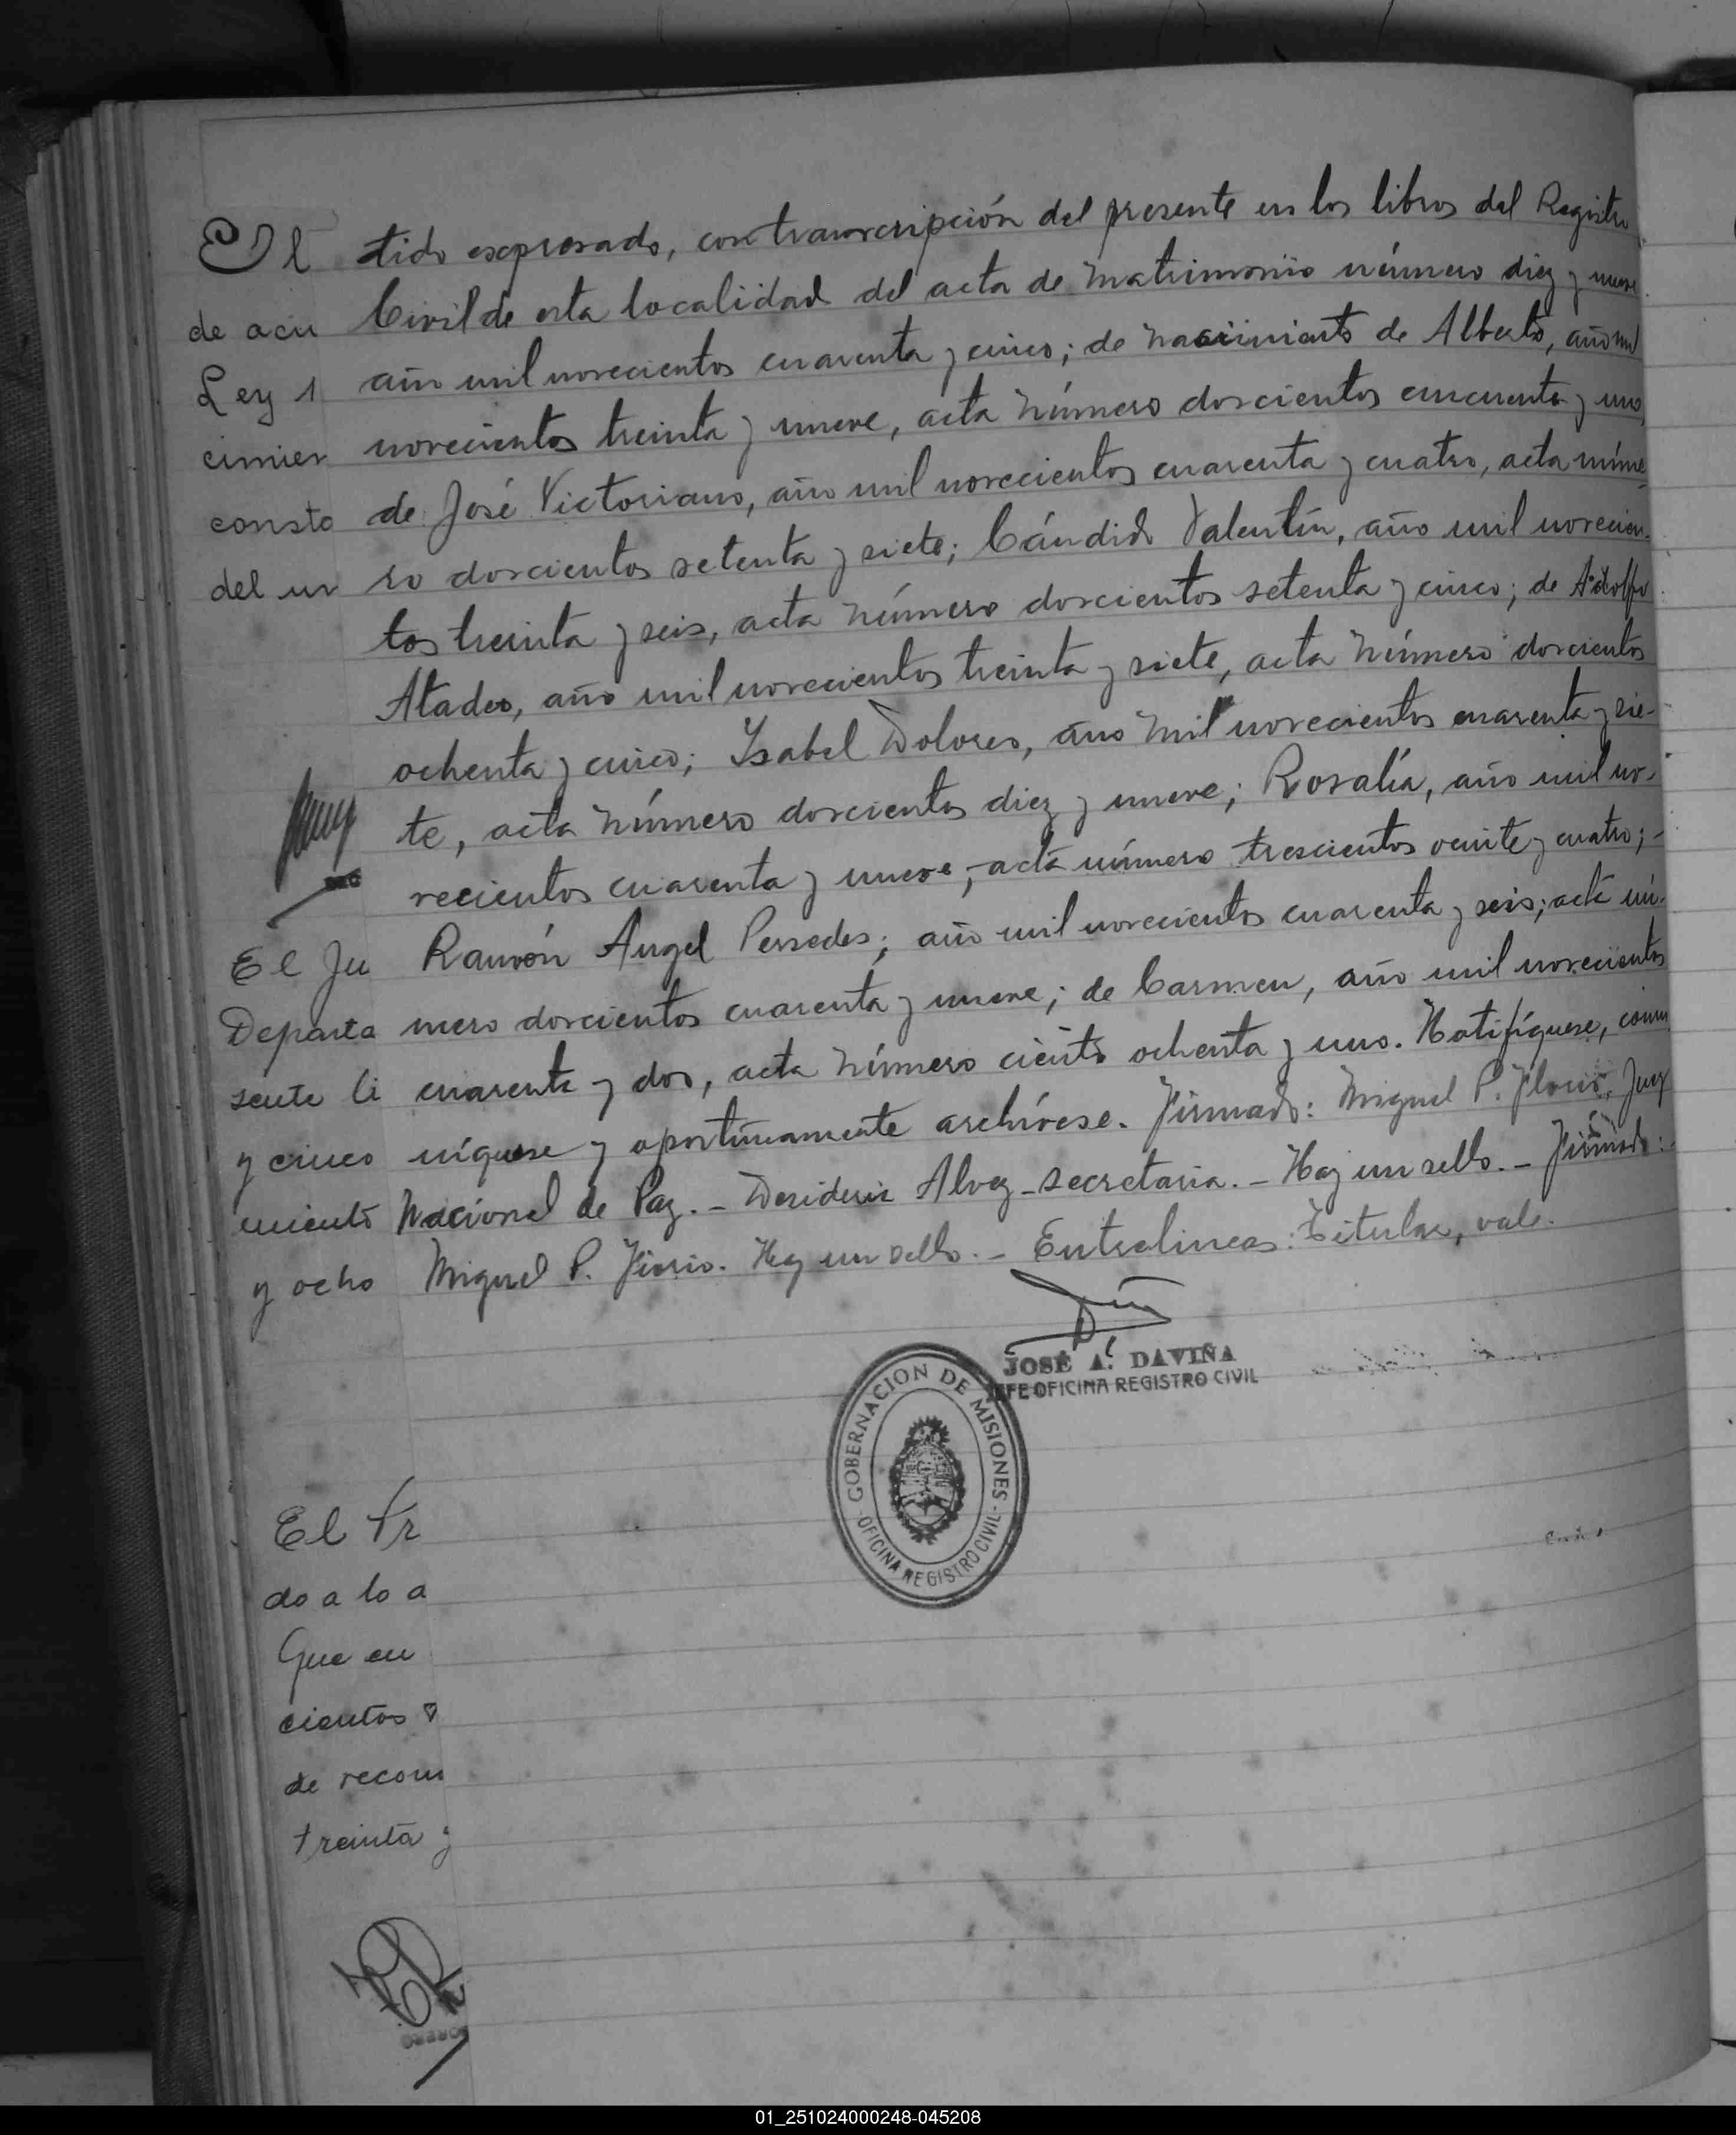 tido expresado, con transcripción del presente en los libros del Registro
Civil de esta localidad del acta de matrimonio número diez y nueve
año mil novecientos cuarenta y cinco; de nacimiento de Alberto, año mil
novecientos treinta y nueve, acta número doscientos cincuenta y uno,
de José Victoriano, año mil novecientos cuarenta y cuatro, acta núme-
ro doscientos setenta y siete; Cándido Valentín, año mil novecien-
tos treinta y seis, acta número doscientos setenta y cinco; de Adolfo
Atadeo, año mil novecientos treinta y siete, acta número doscientos
ochenta y cinco; Ysabel Dolores, año mil novecientos cuarenta y sie-
te, acta número doscientos diez y nueve; Rosalía, año mil no-
vecientos cuarenta y nueve, acta número trescientos veinte y cuatro;-
Ramón Angel Persedes; año mil novecientos cuarenta y seis; acta nú-
mero doscientos cuarenta y nueve; de Carmen, año mil novecientos
cuarenta y dos, acta número ciento ochenta y uno. Notifíquese, comu
níquese y oportunamente archívese. Firmado: Miguel P. Juez
Nacional de Paz.- Desiderio Alvez-secretaria.- Hay un sello.- Firmado:
Miguel P. Hay un sello.- Entrelineas: Titular, vale.
JOSÉ A. DAVIÑA
JEFE OFICINA REGISTRO CIVIL
GOBERNACION DE MISIONES
OFICINA REGISTRO CIVIL
El
de acu
Ley 1
cimien
consta
del un
El Ju
Departa
sente li
y cinco
miento
y ocho
El Tr
do a lo a
Que en
cientos
de recon
treinta y
01_251024000248-045208